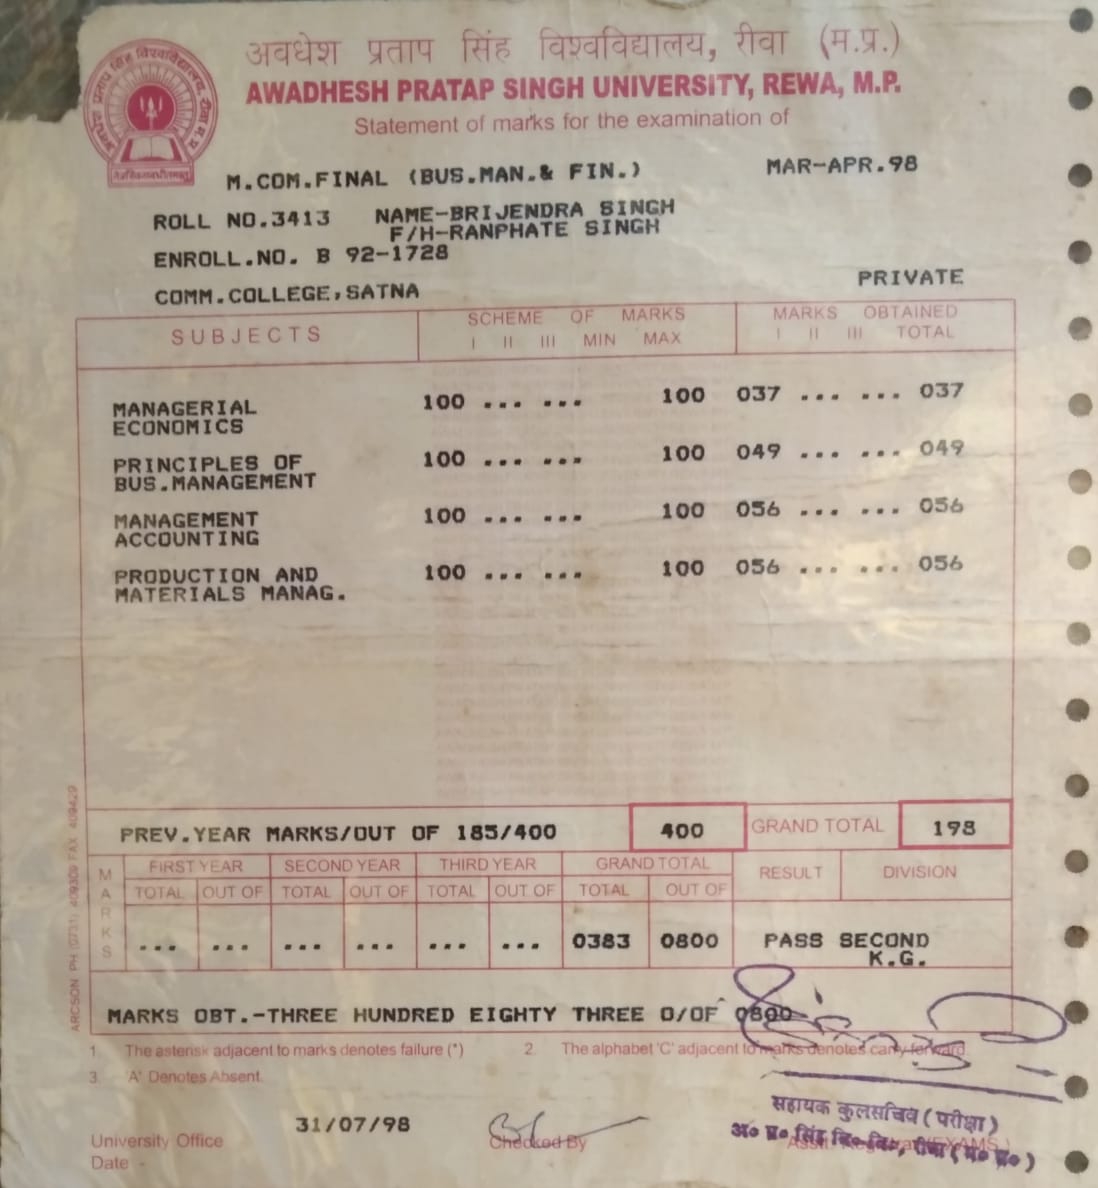 अवधेश प्रताप सिंह विश्वविद्यालय, रीवा (म.प्र.)
AWADHESH PRATAP SINGH UNIVERSITY, REWA, M.P.
Statement of marks for the examination of
M.COM.FINAL (BUS.MAN.& FIN.) MAR-APR.98
ROLL NO.3413 NAME-BRIJENDRA SINGH
F/H-RANPHATE SINGH
ENROLL.NO. B 92-1728
COMM.COLLEGE,SATNA PRIVATE
SUBJECTS SCHEME OF MARKS MARKS OBTAINED
I II III MIN MAX I II III TOTAL
MANAGERIAL 100 ... ... 100 037 ... ... 037
ECONOMICS
PRINCIPLES OF 100 ... ... 100 049 ... ... 049
BUS.MANAGEMENT
MANAGEMENT 100 ... ... 100 056 ... ... 056
ACCOUNTING
PRODUCTION AND 100 ... ... 100 056 ... ... 056
MATERIALS MANAG.
PREV.YEAR MARKS/OUT OF 185/400 400 GRAND TOTAL 198
MARKS FIRST YEAR SECOND YEAR THIRD YEAR GRAND TOTAL RESULT DIVISION
TOTAL OUT OF TOTAL OUT OF TOTAL OUT OF TOTAL OUT OF
... ... ... ... ... ... 0383 0800 PASS SECOND
K.G.
MARKS OBT.-THREE HUNDRED EIGHTY THREE O/OF 0800
1. The asterisk adjacent to marks denotes failure (*) 2. The alphabet 'C' adjacent to marks denotes carry forward.
3. 'A' Denotes Absent.
ARCSON PH (0731) 409309 FAX 409429
31/07/98
सहायक कुलसचिव ( परीक्षा )
अ० प्र० सिंह वि० वि०, रीवा ( म० प्र० )
University Office Checked By
Date -